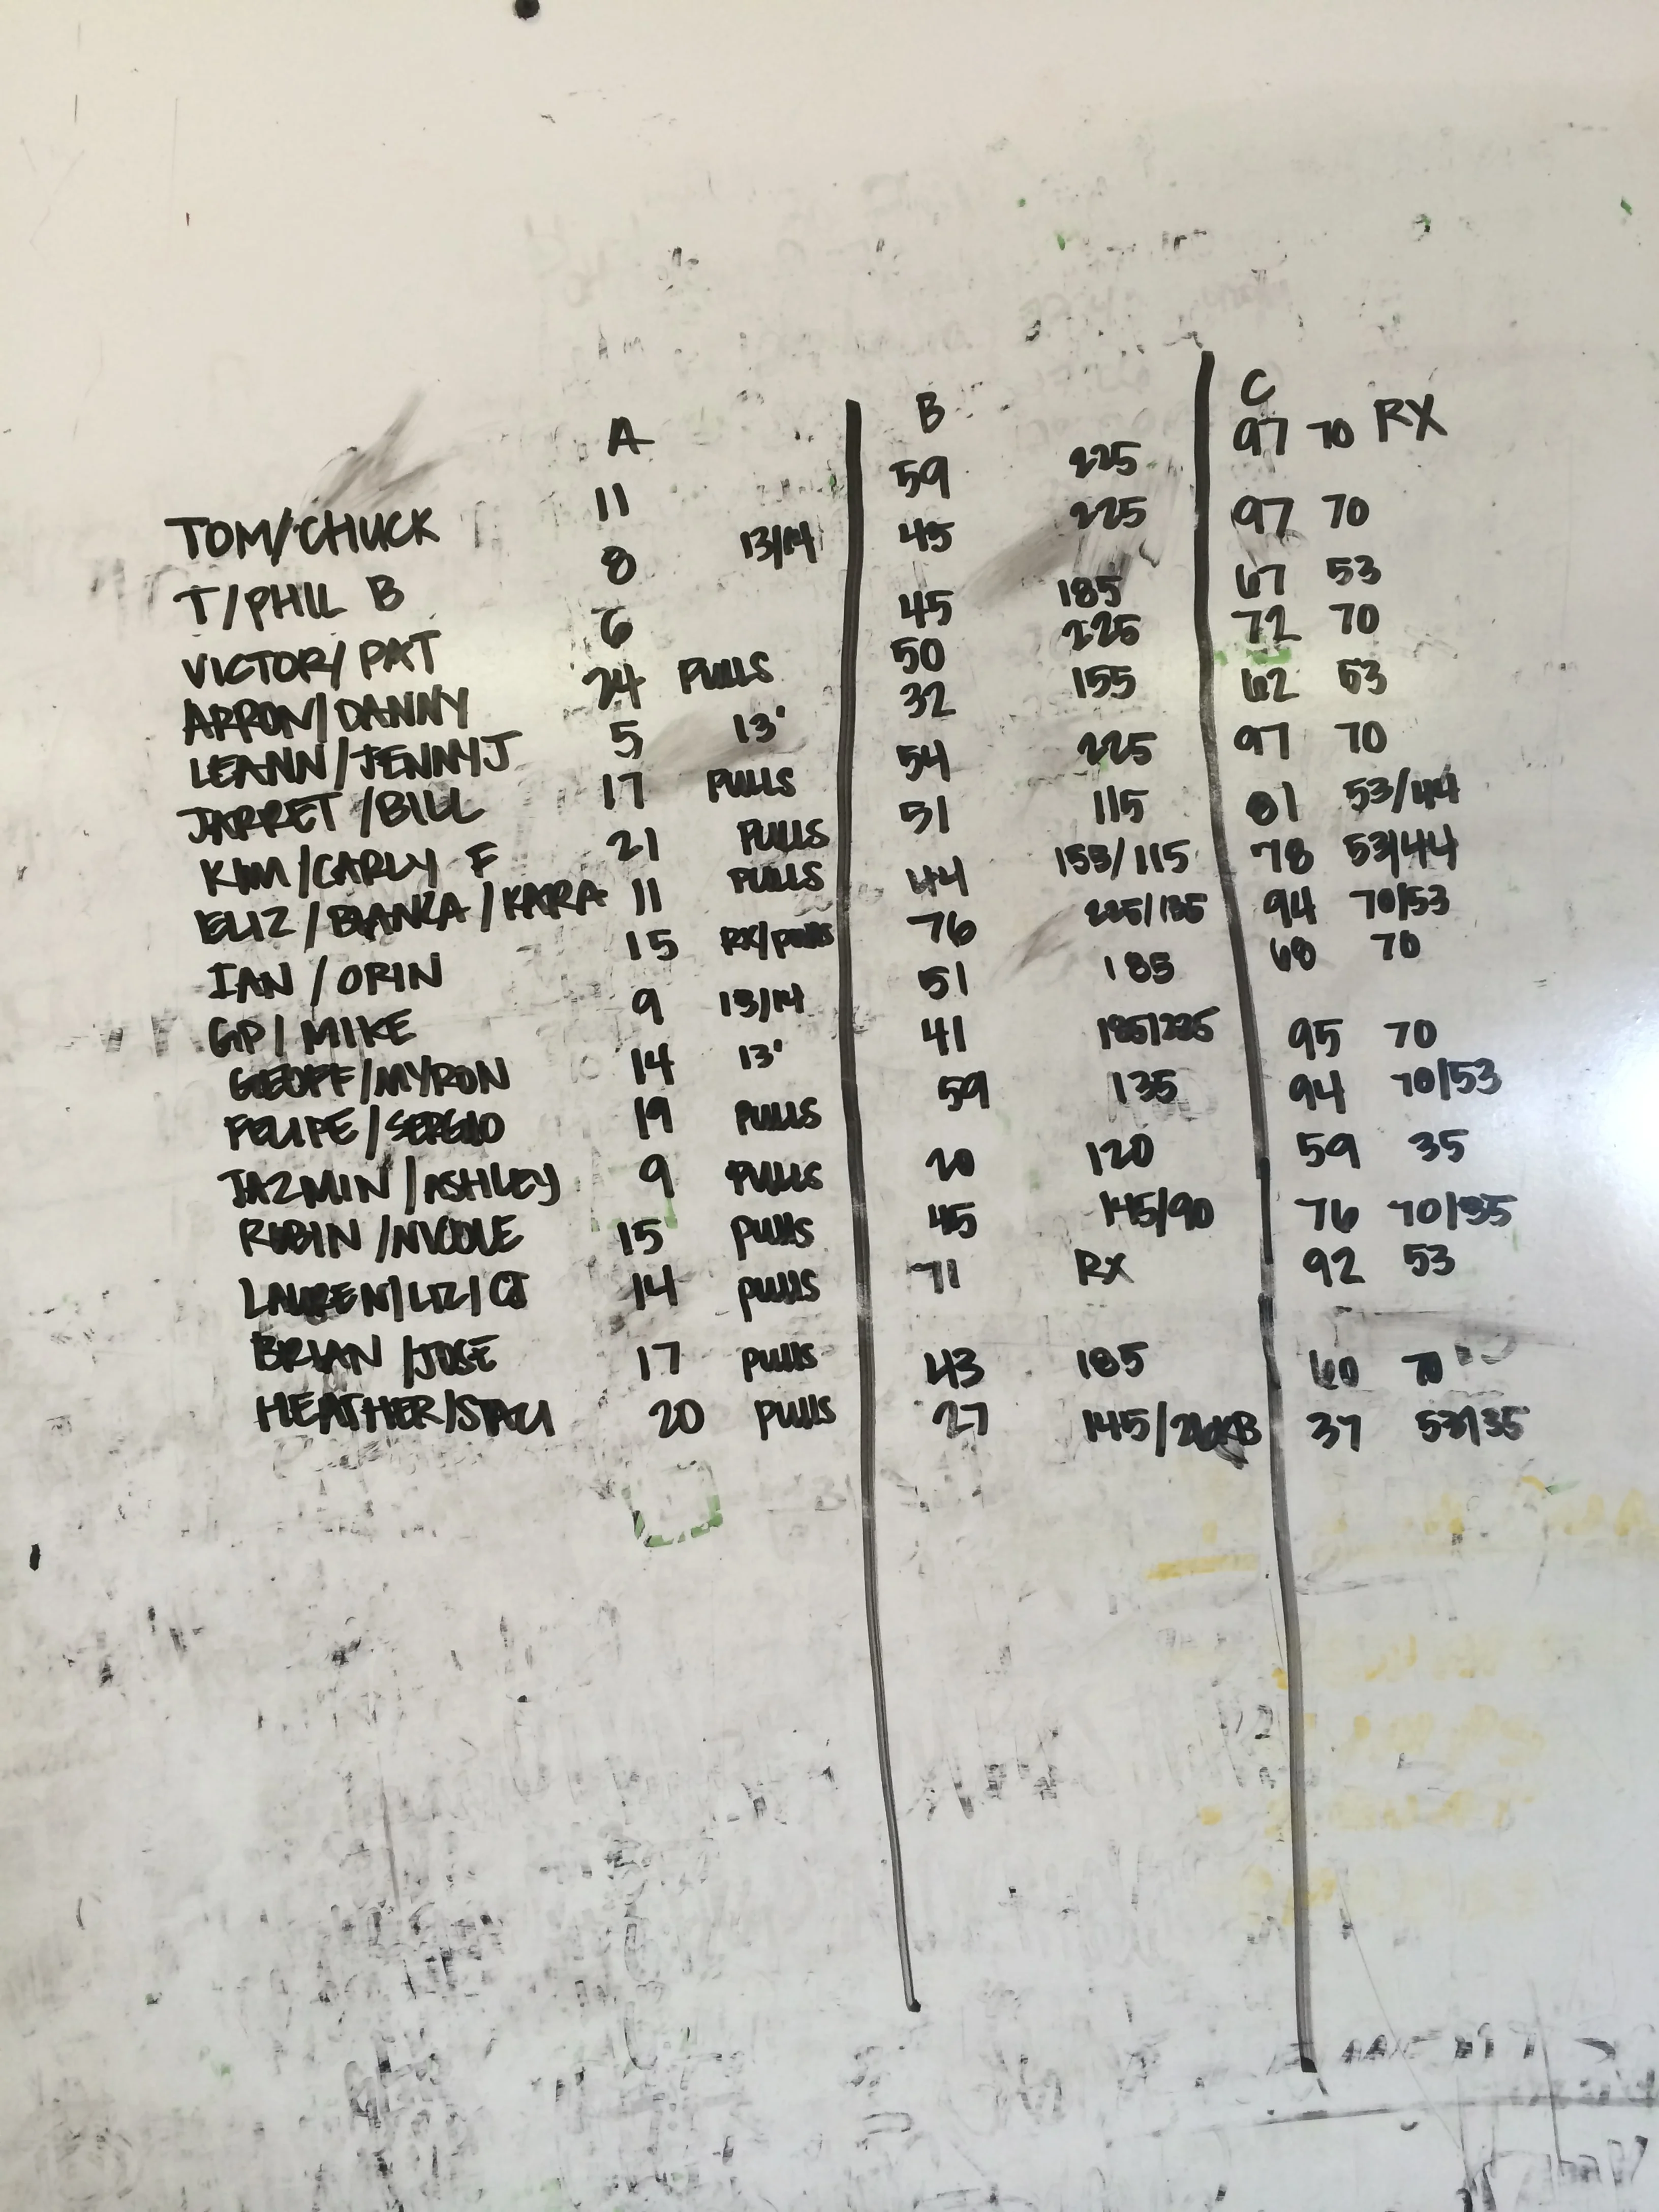 A B C
TOM/CHUCK 11 59 225 97 70 RX
T/PHIL B 8 13/14 45 225 97 70
VICTOR/PAT 6 45 185 67 53
ARRON/DANNY 24 PULLS 50 225 72 70
LEANN/JENNYJ 5 13' 32 155 62 53
JARRET/BILL 17 PULLS 54 225 97 70
KIM/CARLY F 21 PULLS 51 115 81 53/44
ELIZ/BIANKA/KARA 11 PULLS 44 155/115 78 53/44
IAN/ORIN 15 RX/PULLS 76 225/135 94 70/53
GP/MIKE 9 13/14 51 185 68 70
GEOFF/MYRON 14 13' 41 185/225 95 70
FELIPE/SERGIO 19 PULLS 59 135 94 70/53
JAZMIN/ASHLEY 9 PULLS 20 120 59 35
ROBIN/NICOLE 15 PULLS 45 145/90 76 70/35
LAUREN/LIZ/CJ 14 PULLS 71 RX 92 53
BRIAN/JOSE 17 PULLS 43 185 60 70
HEATHER/STACI 20 PULLS 27 145/26KB 37 53/35